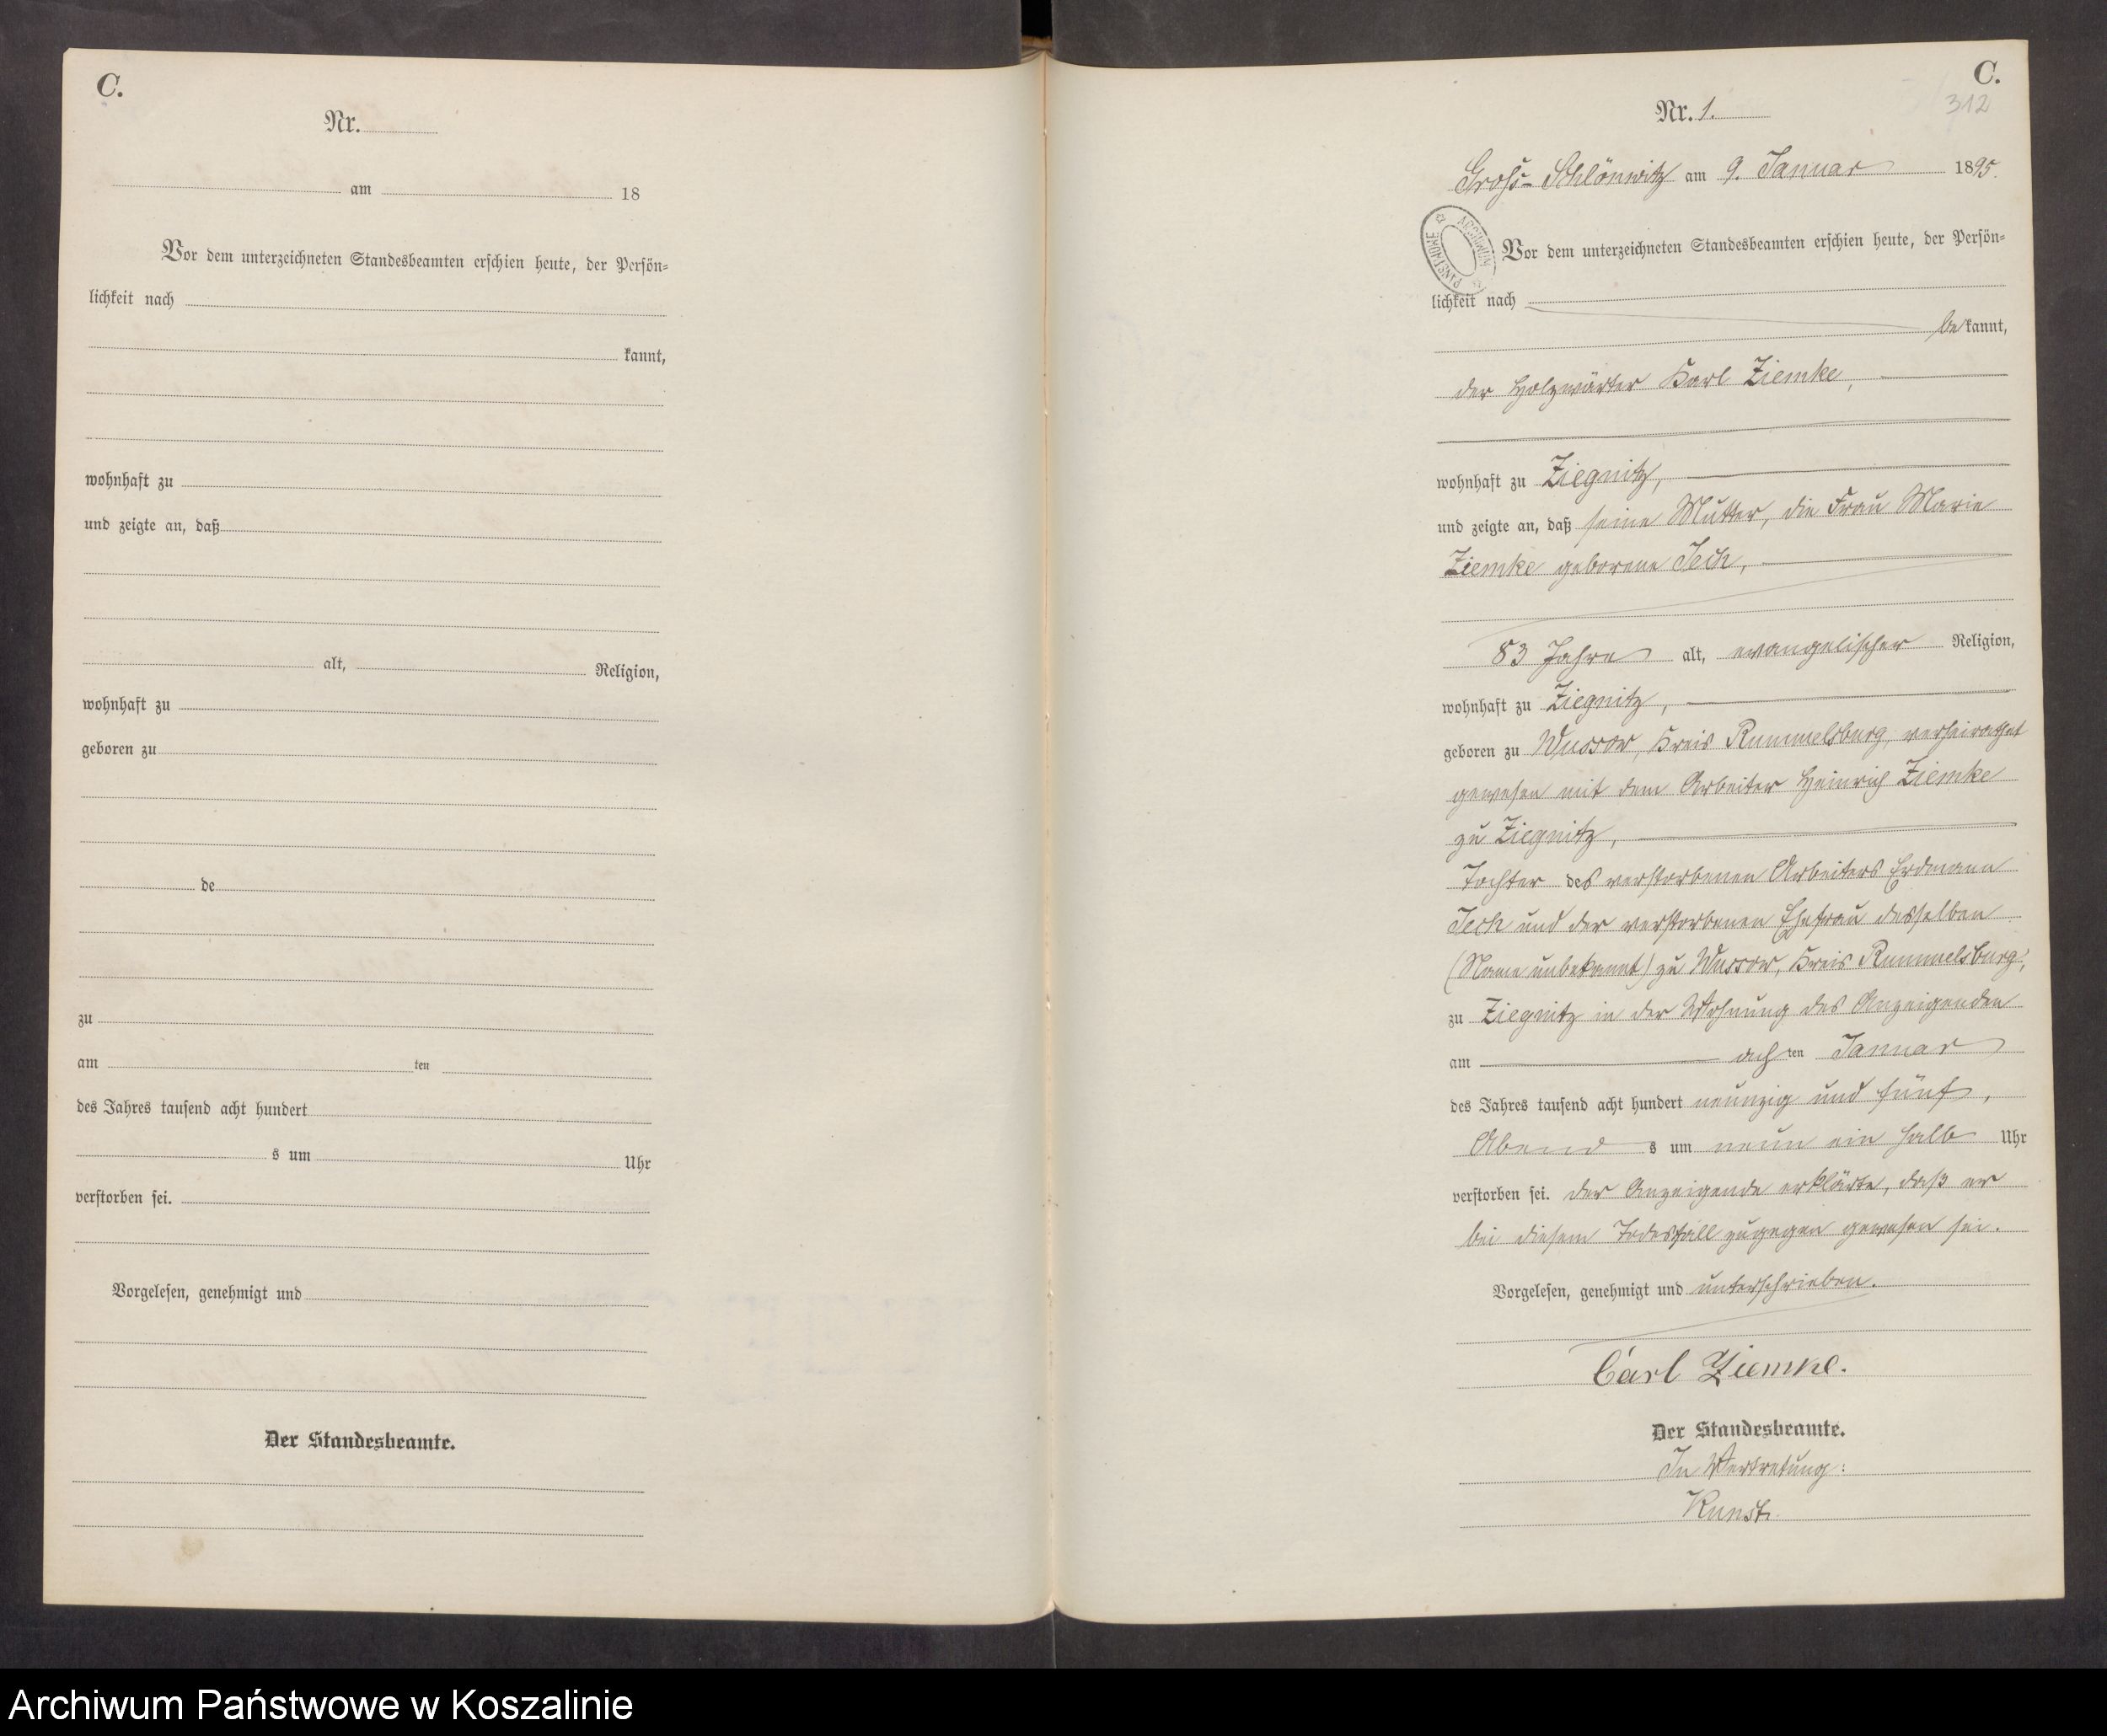 C.
Nr.
am 18
Vor dem unterzeichneten Standesbeamten erschien heute, der Persön=
lichkeit nach
kannt,
wohnhaft zu
und zeigte an, daß
alt, Religion,
wohnhaft zu
geboren zu
de
zu
am ten
des Jahres tausend acht hundert
s um Uhr
verstorben sei.
Vorgelesen, genehmigt und
Der Standesbeamte.
C.
312
Nr. 1.
Gross-Schlönwitz am 9. Januar 1895.
ARCHIWUM PAŃSTWOWE
Vor dem unterzeichneten Standesbeamten erschien heute, der Persön=
lichkeit nach
bekannt,
der Holzwärter Karl Ziemke,
wohnhaft zu Ziegnitz,
und zeigte an, daß seine Mutter, die Frau Marie
Ziemke geborene Jech,
83 Jahre alt, evangelischer Religion,
wohnhaft zu Ziegnitz,
geboren zu Wussow, Kreis Rummelsburg, verheirathet
gewesen mit dem Arbeiter Heinrich Ziemke
zu Ziegnitz,
Tochter des verstorbenen Arbeiters Erdmann
Jech und der verstorbenen Ehefrau desselben
(Name unbekannt) zu Wussow, Kreis Rummelsburg,
zu Ziegnitz in der Wohnung des Anzeigenden
am achten Januar
des Jahres tausend acht hundert neunzig und fünf,
Abends um neun ein halb Uhr
verstorben sei. Der Anzeigende erklärte, daß er
bei diesem Todesfall zugegen gewesen sei.
Vorgelesen, genehmigt und unterschrieben.
Carl Ziemke.
Der Standesbeamte.
In Vertretung:
Kunst.
Archiwum Państwowe w Koszalinie